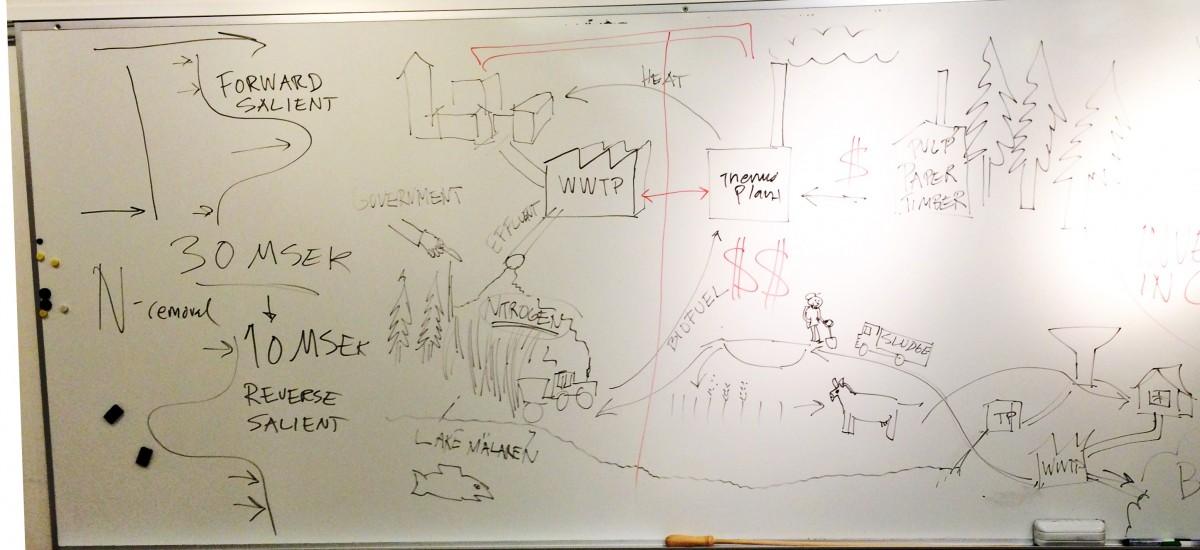 FORWARD
SALIENT
30 MSEK
N-removal
10 MSEK
REVERSE
SALIENT
HEAT
WWTP
GOVERNMENT
EFFLUENT
NTROGEN
LAKE MÄLAREN
Thermo
Plant
$
PULP
PAPER
TIMBER
$$
BIOFUEL
SLUDGE
TP
WWTP
B